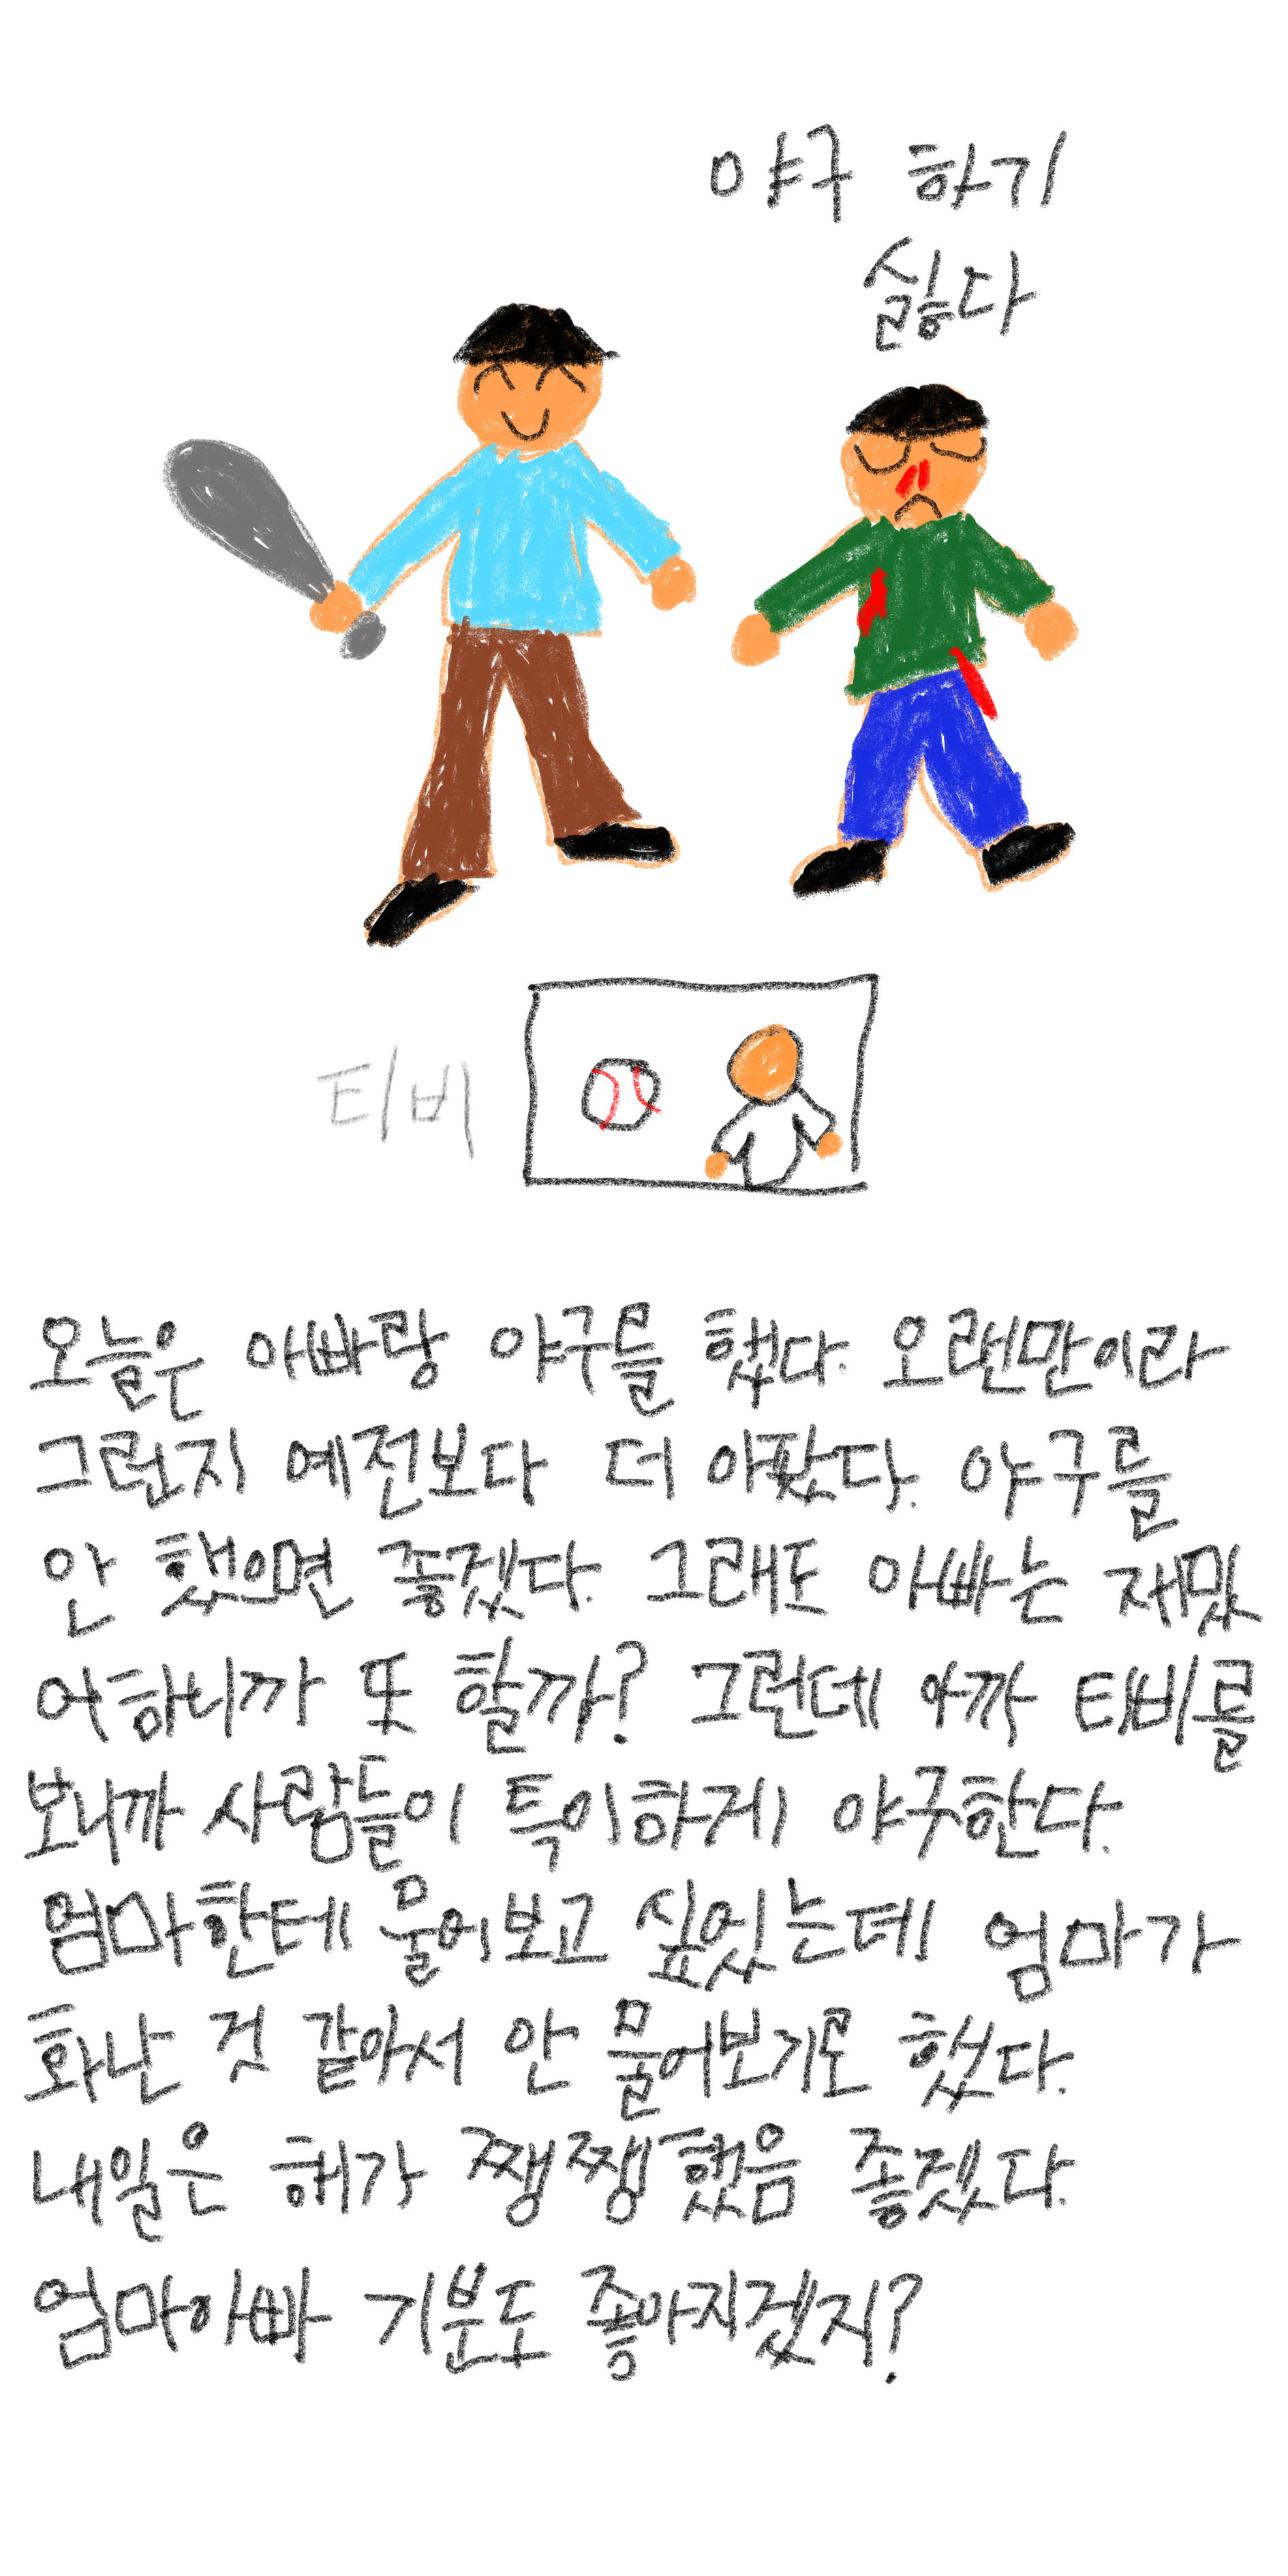 야구 하기
싫다
티비
오늘은 아빠랑 야구를 했다. 오랜만이라
그런지 예전보다 더 아팠다. 야구를
안 했으면 좋겠다. 그래도 아빠는 재밌
어하니까 또 할까? 그런데 아까 티비를
보니까 사람들이 특이하게 야구한다.
엄마한테 물어보고 싶었는데 엄마가
화난 것 같아서 안 물어보기로 했다.
내일은 해가 쨍쨍했음 좋겠다.
엄마아빠 기분도 좋아지겠지?